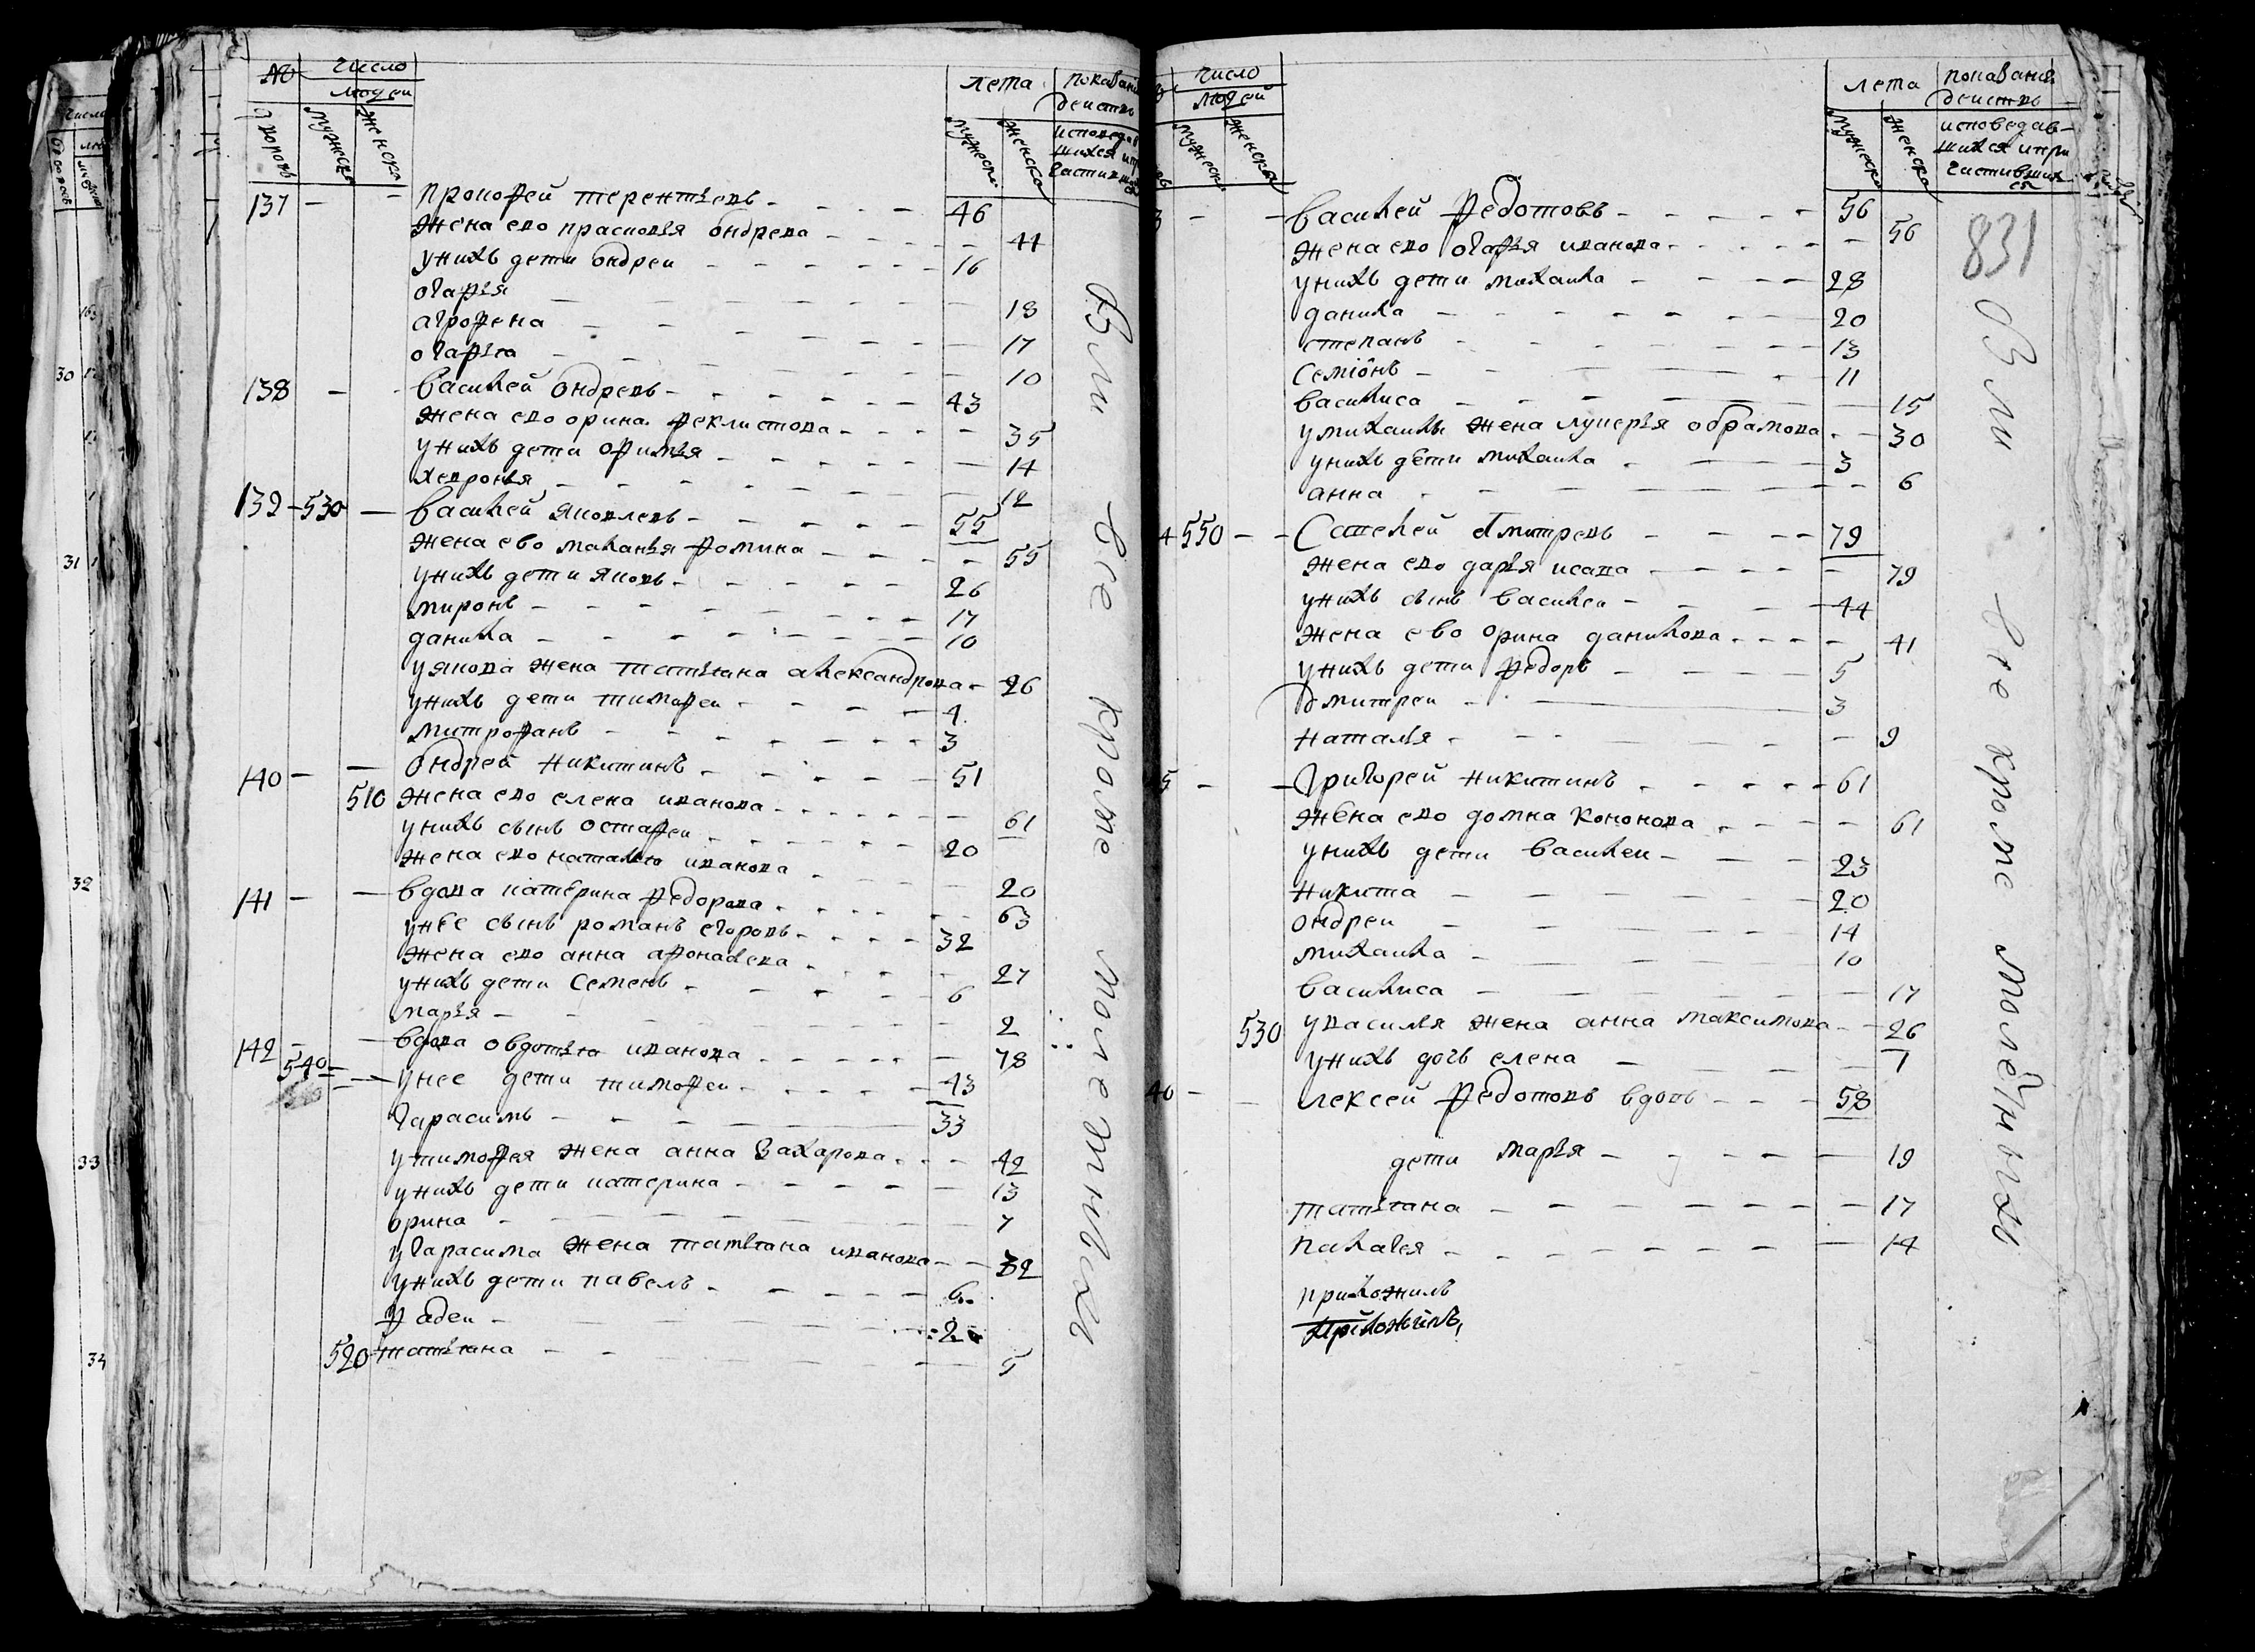 № число лета показани
людей действ
дворовъ мужеска женска мужеска женска исповедав
шихся и при
частивши
ся
137 - - Прокофей терентьевъ - 46
жена ево прасковья ондрева - 44
у нихъ дети ондреи - 16
огафья - 18
агрофена - 17
огафья - 10
138 - - василей ондревъ - 43
жена ево орина феклистова - 35
у нихъ дети офимья - 14
хевронья - 12
139 - 530 - василей яковлевъ - 55
жена ево маланья фомина - 55
у нихъ дети яковъ - 26
миронъ - 17
данила - 10
у якова жена татьяна александрова - 26
у нихъ дети тимофеи - 4
митрофанъ - 3
140 - - ондрей никитинъ - 51
510 жена ево елена иванова - 61
у нихъ сынъ остафеи - 20
жена ево наталья иванова - 20
141 - - вдова катерина федорова - 63
у нее сынъ романъ егоровъ - 32
жена ево анна афонасева - 27
у нихъ дети семенъ - 6
марья - 2
142 - - вдова овдотья иванова - 78
540 - у нее дети тимофеи - 43
гарасимъ - 33
у тимофея жена анна захарова - 42
у нихъ дети катерина - 13
орина - 7
у гарасима жена татьяна иванова - 32
у нихъ дети павелъ - 6
фадеи - 2
520 татьяна - 5
Были все кроме молетнихъ
число лета показания
людей действъ
мужеска женска мужеска женска исповедав-
шихся и при
частивших
ся
831
3 - - василей федотовъ - 56
жена ево огафья иванова - 56
у нихъ дети михаила - 28
данила - 20
степанъ - 13
семионъ - 11
василиса - 15
у михаилы жена лукерья обрамова - 30
у нихъ дети михаила - 3
анна - 6
4 550 - - Савелей дмитревъ - 79
жена ево дарья исаева - 79
у нихъ сынъ василеи - 44
жена ево орина данилова - 41
у нихъ дети федоръ - 5
дмитреи - 3
наталья - 9
5 - - григорей никитинъ - 61
жена ево домна кононова - 61
у нихъ дети василеи - 23
никита - 20
ондреи - 14
михаила - 10
василиса - 17
530 у василья жена анна максимова - 26
у нихъ дочь елена - 1
46 - - алексеи федотовъ вдовъ - 58
дети марья - 19
татьяна - 17
палагея - 14
приложилъ
приложилъ
Были все кроме молетнихъ
30
31
32
33
34